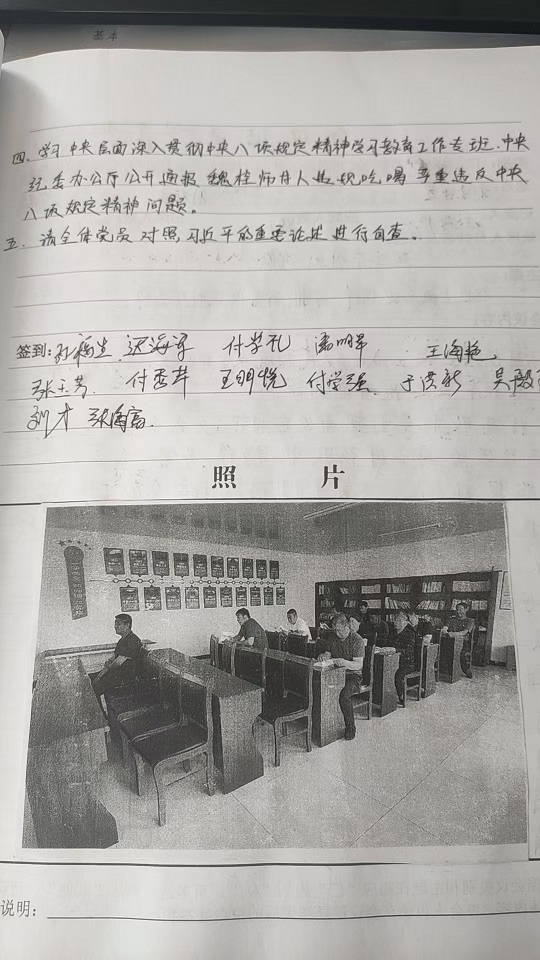 四、学习中央层面深入贯彻中央八项规定精神学习教育工作专班、中央
纪委办公厅公开通报 等人违规吃喝严重违反中央
八项规定精神问题。
五、请全体党员对照习近平的重要论述进行自查。
签到: 付学礼 王海艳
张玉芳 付秀芹 王明悦 付学强 于洪新 吴殿
刘才 张海富
照 片
说明: